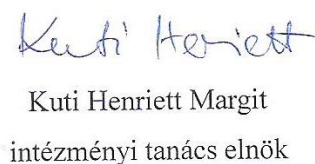 Kuti Henriett
Kuti Henriett Margit
intézményi tanács elnök